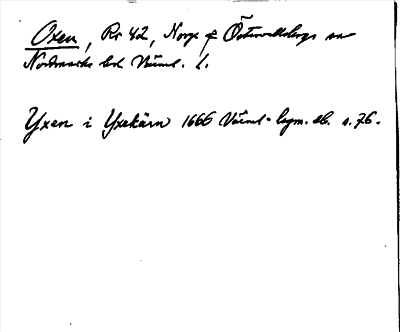 Oxen, Rs 42, Norge f Östervallskogs sn
Nordmarks hd Värml. l.
Yxen i Yxekärn 1666 Värml. lsym. sb. s. 76.